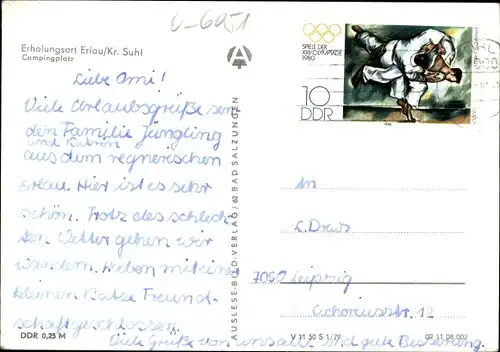 V-6051
Erholungsort Erlau/Kr. Suhl
Campingplatz
Liebe Omi!
Viele Urlaubsgrüße sen
den Familie Jüngling
und Katrin
aus dem regnerischen
Erlau. Hier ist es sehr
schön. Trotz des schlech
ten Wetter gehen wir
wandern. Haben mit einer
kleinen Katze Freund-
schaft geschlossen.
Viele Grüße von uns allen und gute Besserung.
DDR 0,25 M
AUSLESE-BILD-VERLAG / 62 BAD SALZUNGEN
SPIELE DER
XXII. OLYMPIADE
1980
10
DDR
An
7050 Leipzig
12
V 11 50 S 1/79
09 11 08 002